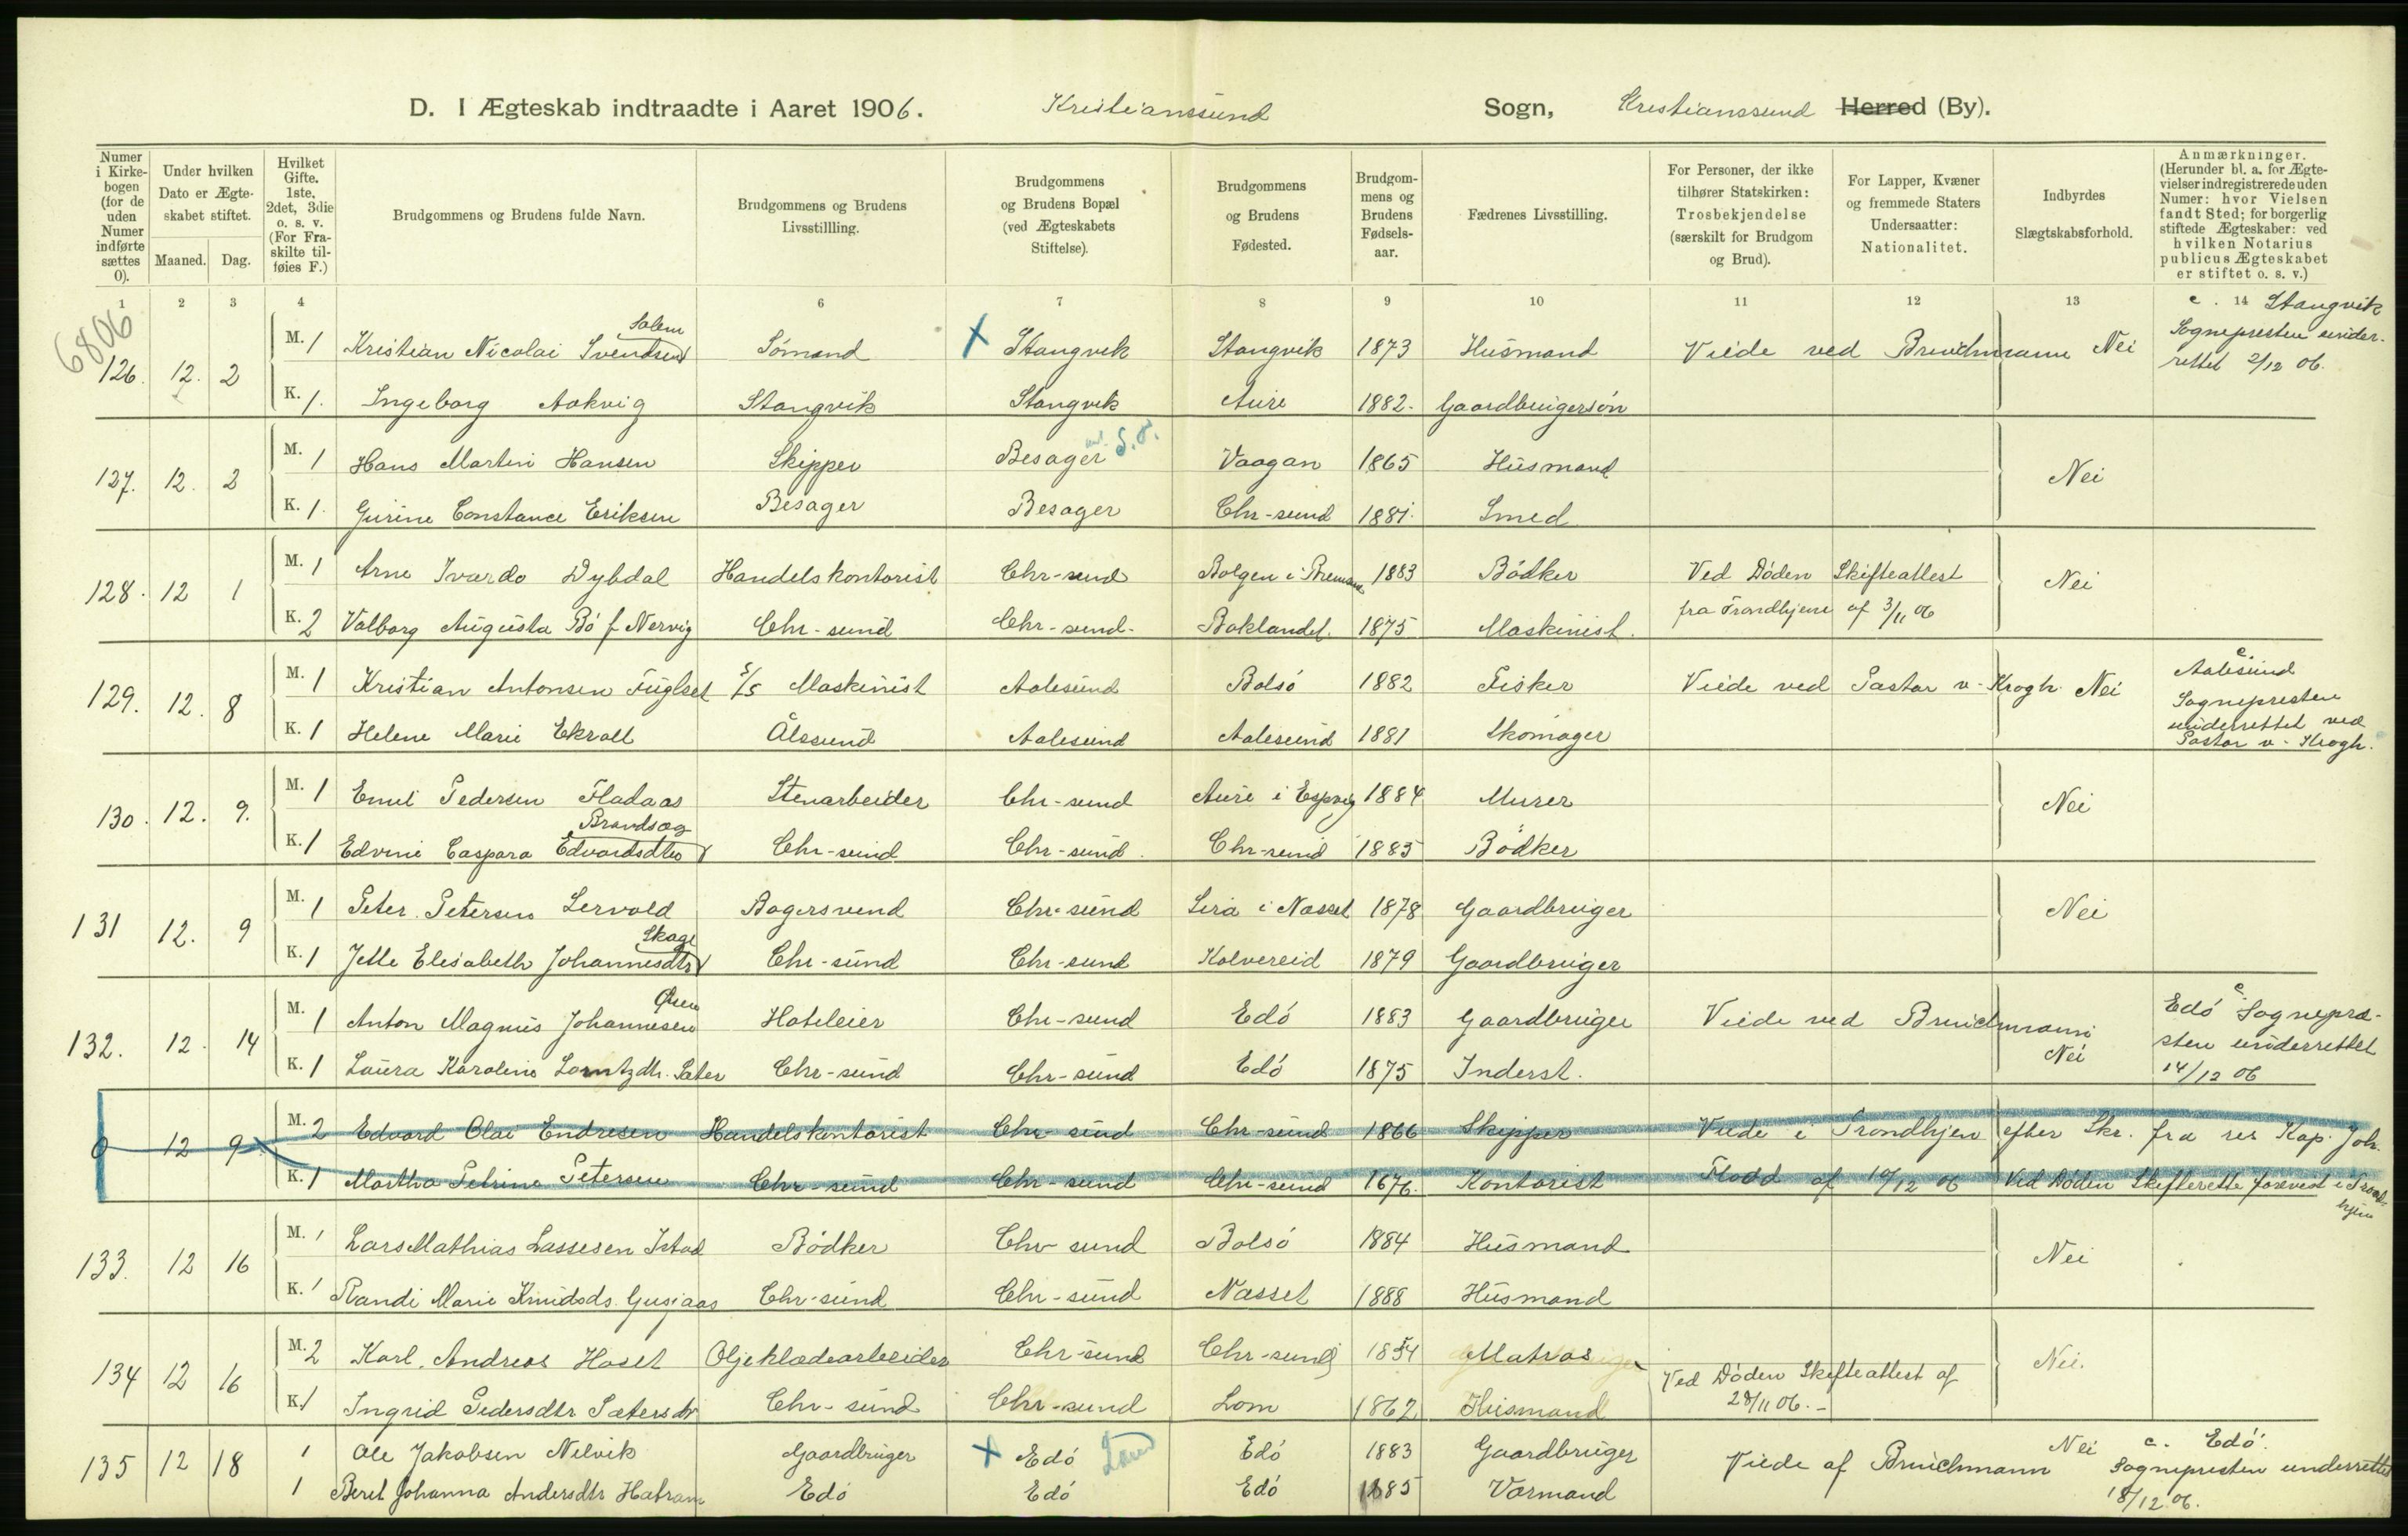 D. I Ægteskab indtraadte i Aaret 1906. Kristianssund Sogn, Kristianssund Herred (By).
Numer i Kirkebogen (for de uden Numer indførte sættes 0).
Under hvilken Dato er Ægteskabet stiftet.
Maaned. Dag.
Hvilket Gifte. 1ste, 2det, 3die o. s. v. (For Fraskilte tilføies F.)
Brudgommens og Brudens fulde Navn.
Brudgommens og Brudens Livsstillling.
Brudgommens og Brudens Bopæl (ved Ægteskabets Stiftelse).
Brudgommens og Brudens Fødested.
Brudgommens og Brudens Fødselsaar.
Fædrenes Livsstilling.
For Personer, der ikke tilhører Statskirken: Trosbekjendelse (særskilt for Brudgom og Brud).
For Lapper, Kvæner og fremmede Staters Undersaatter: Nationalitet.
Indbyrdes Slægtskabsforhold.
Anmærkninger. (Herunder bl. a. for Ægtevielser indregistrerede uden Numer: hvor Vielsen fandt Sted; for borgerlig stiftede Ægteskaber: ved hvilken Notarius publicus Ægteskabet er stiftet o. s. v.)
1 2 3 4 6 7 8 9 10 11 12 13 14
6806
126. 12. 2 M. 1 Kristian Nicolai Svendsen Solem Sömand X Stangvik Stangvik 1873 Husmand Viede ved Bruichmann Nei c. Stangvik Sognepresten underrettet 2/12 06.
K. 1. Ingeborg Aakvig Stangvik Stangvik Aure 1882. Gaardbrugersön
127. 12. 2 M. 1 Hans Martin Hansen Skipper Besager Vaagan 1865 Husmand Nei
K. 1. Gurine Constance Eriksen Besager Besager Chr-sund 1881. Smed
128. 12 1 M. 1 Arne Ivardo Dybdal Handelskontorist Chr-sund Bolgen i Bremsnes 1883 Bödker Ved Döden Skifteattest Nei
K. 2 Valborg Augusta Bö f. Nervig Chr-sund Chr-sund. Baklandet. 1875 Maskinist. fra Trondhjem af 3/11 06
129. 12. 8 M. 1 Kristian Antonsen Fuglset S/S Maskinist Aalesund Bolsö 1882 Fisker Viede ved Pastor v. Krogh Nei c. Aalesund
K. 1 Helene Marie Ekroll Ålesund Aalesund Aalesund 1881 Skomager Sognepresten underrettet ved Pastor v. Krogh.
130. 12. 9. M. 1 Emil Pedersen Fladaas Stenarbeider Chr-sund Aure i Espvig 1884 Murer Nei
K. 1 Edvine Caspara Edvardsdtr Brandsæg Chr-sund Chr-sund. Chr-sund 1885 Bödker
131 12. 9 M. 1 Peter Petersen Lervold Bagersvend Chr-sund Lira i Næsset 1878 Gaardbruger Nei
K. 1 Jette Elisabeth Johannesdtr Skage Chr-sund Chr-sund Kolvereid 1879 Gaardbruger
132. 12. 14 M. 1 Anton Magnus Johannesen Hoteleier Chr-sund Edö 1883 Gaardbruger Viede ved Bruichmann Nei c. Edö Sognepresten underrettet 14/12 06
K. 1 Laura Karoline Lorntzdtr. Sæter Chr-sund Chr-sund Edö 1875 Inderst.
0 12 9 M. 2 Edvard Olai Endresen Handelskontorist Chr-sund Chr-sund 1866 Skipper Viede i Trondhjem efter Skr. fra res Kap. Joh.
K. 1 Martha Petrine Petersen Chr-sund Chr-sund Chr-sund 1876. Kontorist Flodd af 10/12 06 Ved Döden Skifterette forevist i Trondhjem
133. 12 16 M. 1 Lars Mathias Lassesen Istad Bödker Chr sund Bolsö 1884 Husmand Nei
K. 1 Randi Marie Knudsds. Gusjaas Chr-sund Chr-sund Næsset 1888 Husmand
134 12 16 M. 2 Karl Andreas Haset Oljeklædearbeider Chr-sund Chr-sund 1854 Matros Nei.
K. 1 Ingrid Pedersdtr Sætersdr Chr-sund Chr-sund Lom 1862 Husmand Ved Döden Skifteattest af 28/11 06.
135 12 18 1 Ole Jakobsen Nelvik Gaardbruger X Edö Edö 1883 Gaardbruger Viede af Bruichmann Nei c. Edö.
1 Beret Johanna Andersdtr Hafram Edö Edö Edö 1885 Vormand Sognepresten underrettet 18/12 06.